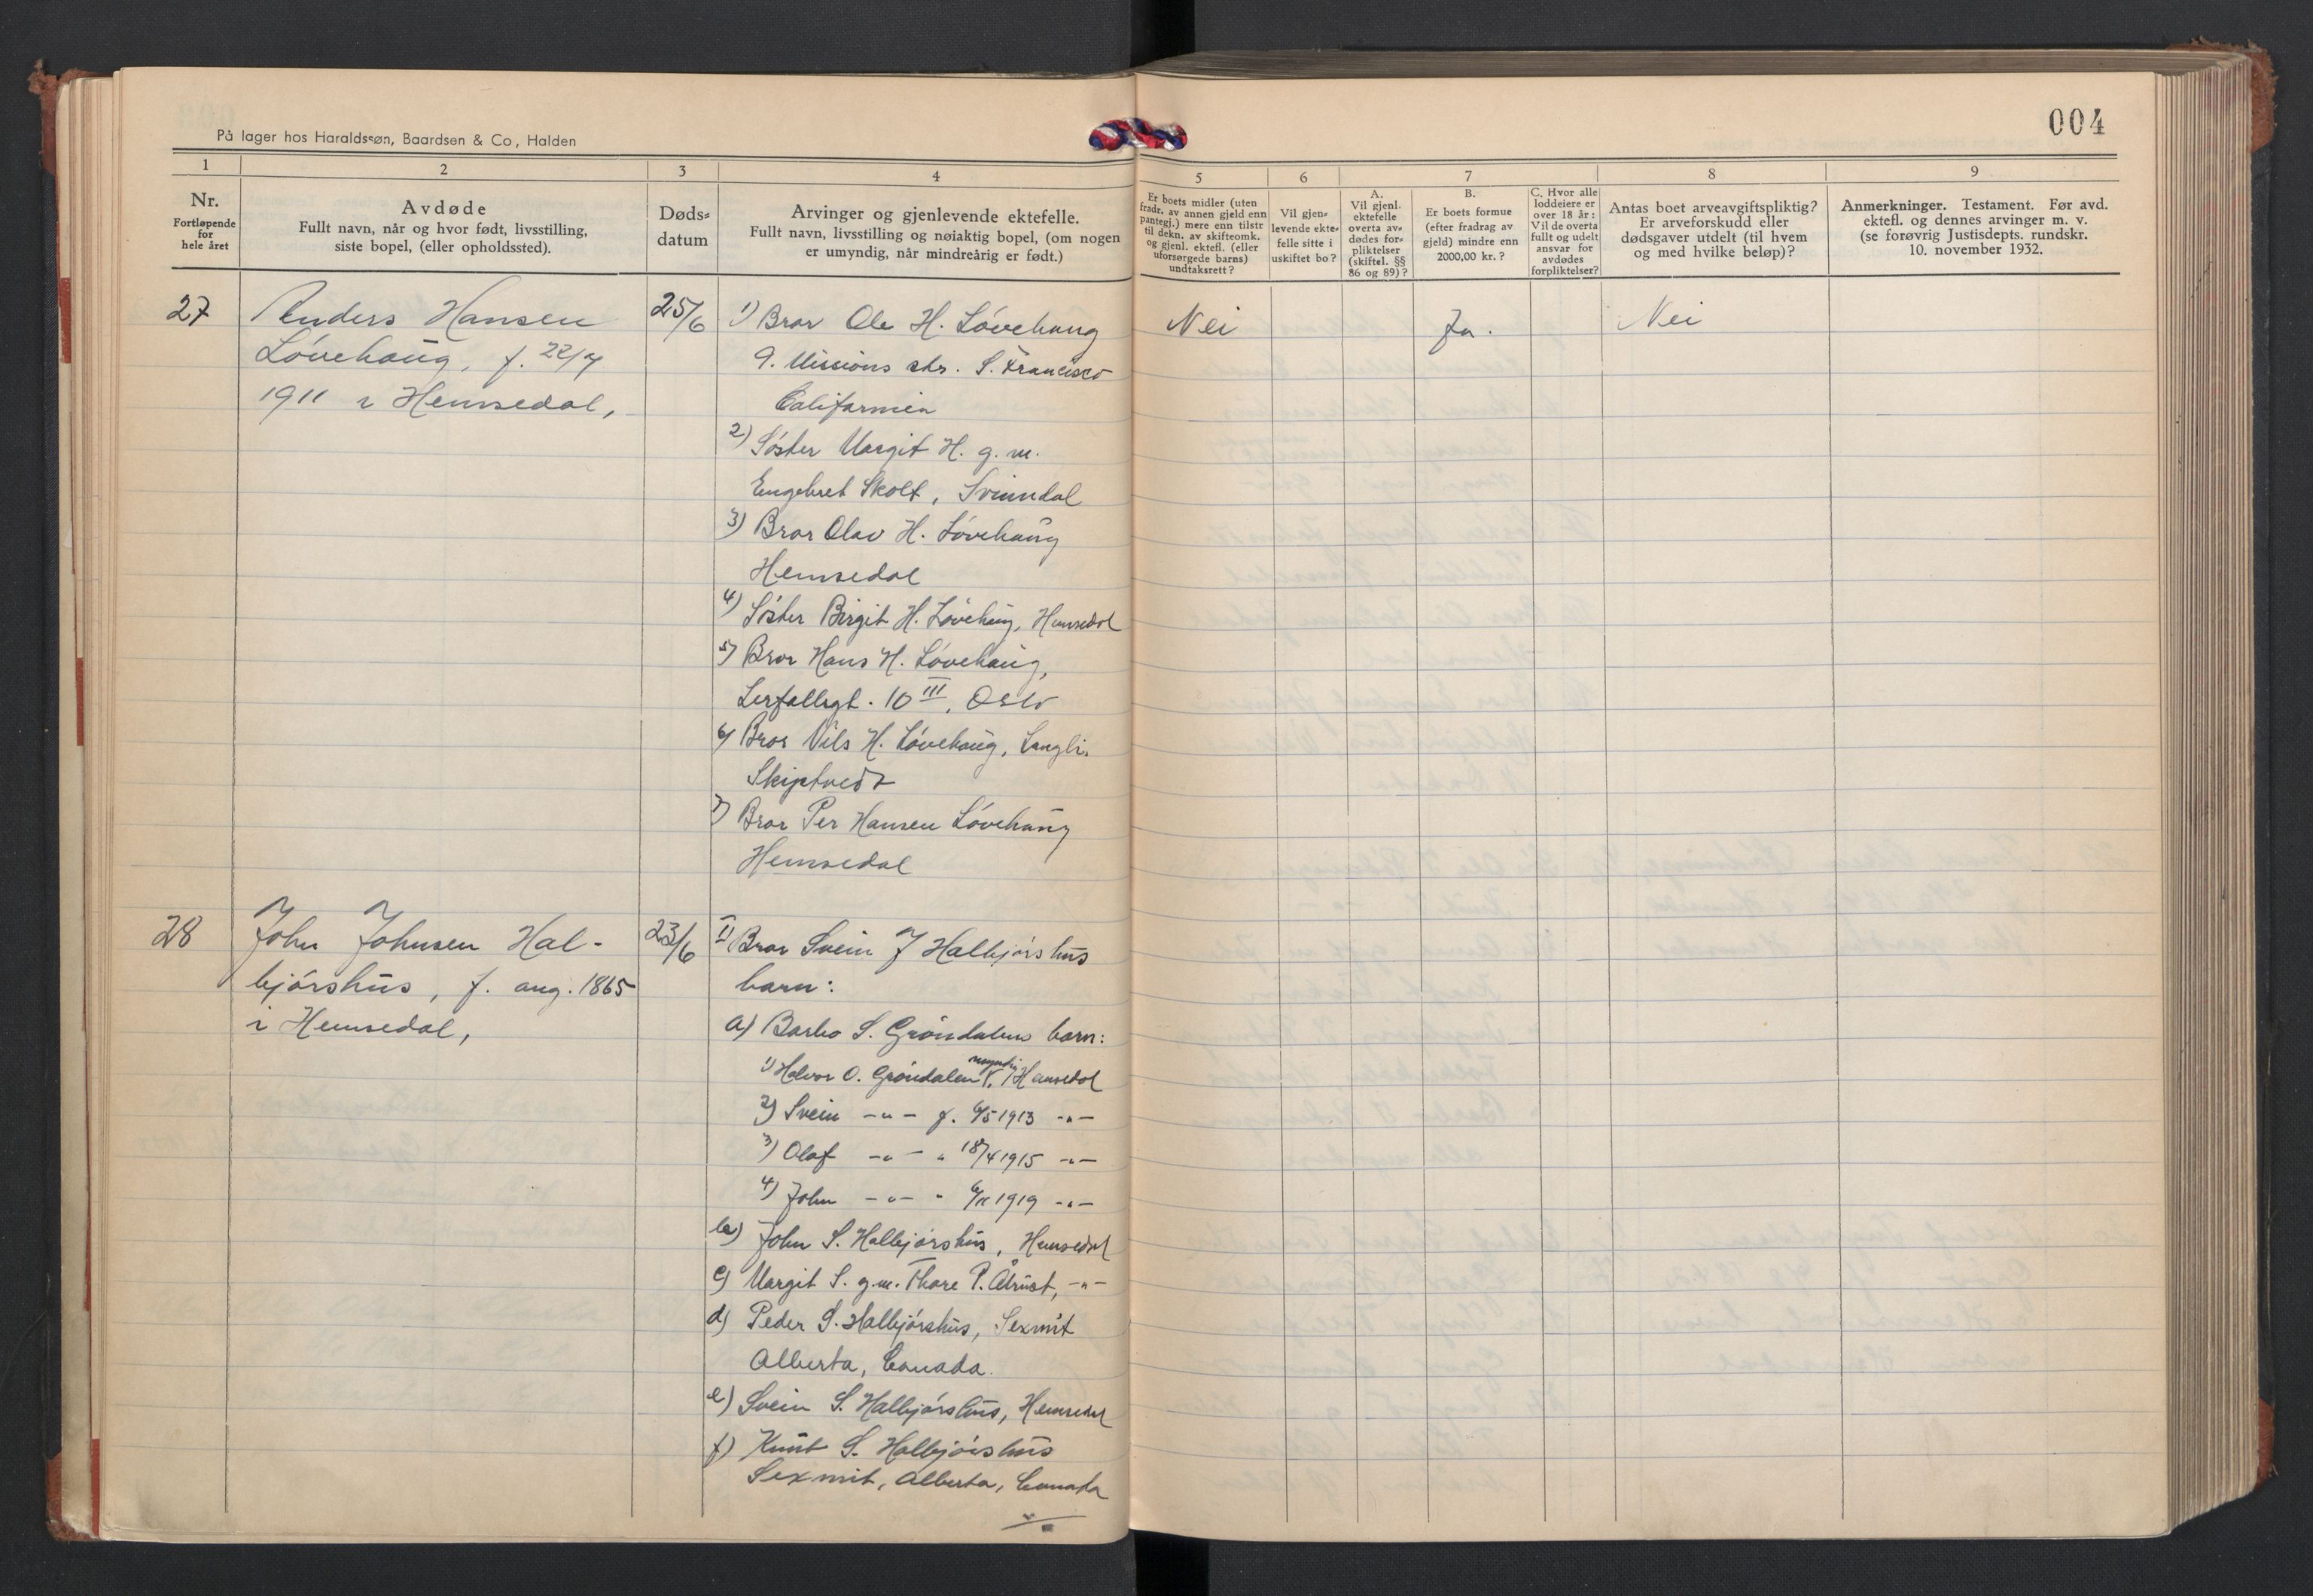 På lager hos Haraldssøn, Baardsen & Co, Halden
004
1 2 3 4 5 6 7 8 9
Nr.
Fortløpende
for
hele året
Avdøde
Fullt navn, når og hvor født, livsstilling,
siste bopel, (eller opholdssted).
Døds=
datum
Arvinger og gjenlevende ektefelle.
Fullt navn, livsstilling og nøiaktig bopel, (om nogen
er umyndig, når mindreårig er født.)
Er boets midler (uten
fradr. av annen gjeld enn
pantegj.) mere enn tilstr
til dekn. av skifteomk.
og gjenl. ektefl. (eller
uforsørgede barns)
undtaksrett?
Vil gjen=
levende ekte=
felle sitte i
uskiftet bo?
A.
Vil gjenl.
ektefelle
overta av=
dødes for=
pliktelser
(skiftel. §§
86 og 89)?
B.
Er boets formue
(efter fradrag av
gjeld) mindre enn
2000,00 kr.?
C. Hvor alle
loddeiere er
over 18 år:
Vil de overta
fullt og udelt
ansvar for
avdødes
forpliktelser?
Antas boet arveavgiftspliktig?
Er arveforskudd eller
dødsgaver utdelt (til hvem
og med hvilke beløp)?
Anmerkninger. Testament. Før avd.
ektefl. og dennes arvinger m. v.
(se forøvrig Justisdepts. rundskr.
10. november 1932.
27
Anders Hansen
Lövehaug, f. 22/7
1911 i Hemsedal,
25/6
1) Bror Ole H. Lövehaug
9. Missions str. S. Francisco
Californien
2) Söster Margit H. g. m.
Engebret Skolt, Svinndal
3) Bror Olav H. Lövehaug
Hemsedal
4) Söster Birgit H. Lövehaug, Hemsedal
5) Bror Hans H. Lövehaug,
Lerfallsgt. 10 III, Oslo
6) Bror Nils H. Lövehaug, Langli,
Skiptvedt
7) Bror Per Hansen Lövehaug
Hemsedal
Nei
Ja.
Nei
28
John Johnsen Hal-
björshus, f. aug. 1865
i Hemsedal,
23/6
I) Bror Svein J Halbjörshus
barn:
a) Barbo S. Gröndalens barn:
myndig
1) Halvor O. Gröndalen, Hemsedal
2) Svein -"- f. 6/5 1913 -"-
3) Olaf -"- " 18/4 1915 -"-
4) John -"- " 6/11 1919 -"-
b) John S. Halbjörshus, Hemsedal
c) Margit S. g.m. Thore P. Ålrust, -"-
d) Peder S. Halbjörshus, Sexmit
Alberta, Canada.
e) Svein S. Halbjörshus, Hemsedal
f) Knut S. Halbjörshus
Sexmit, Alberta, Canada